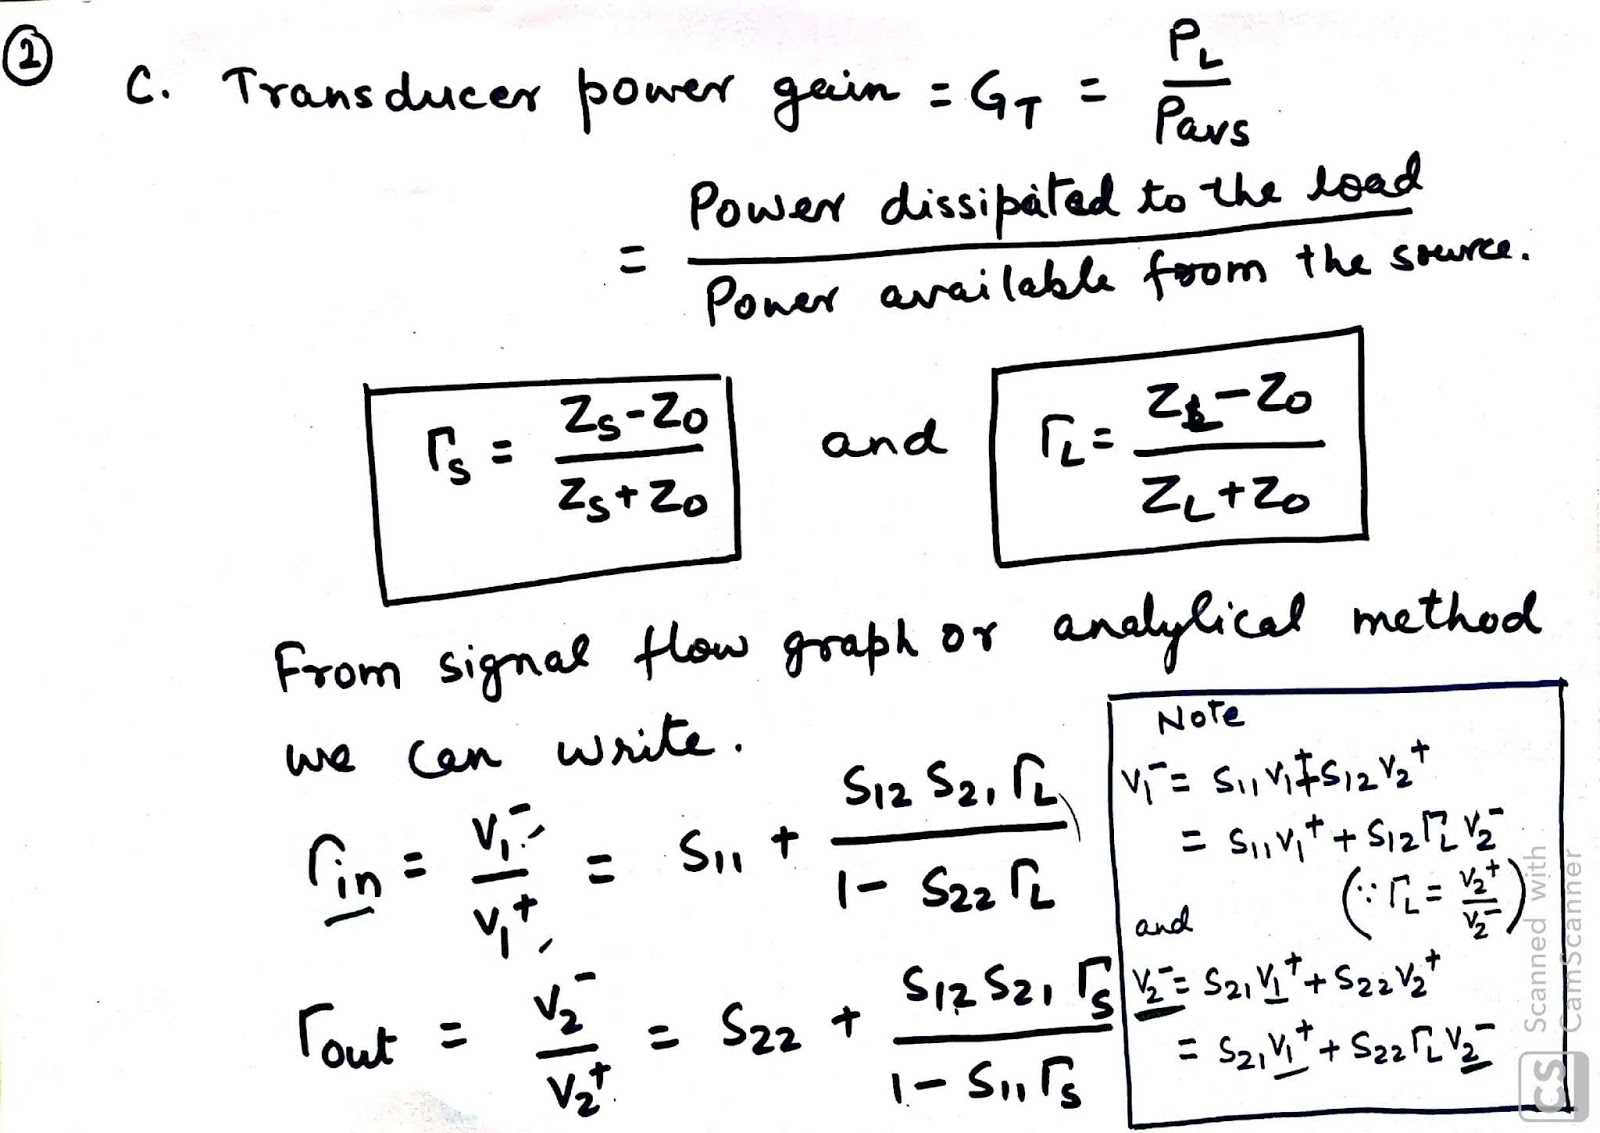 ②
C. Transducer power gain = G_T = P_L / Pavs
= Power dissipated to the load / Power available from the source.
Γ_S = (Z_S - Z_0) / (Z_S + Z_0) and Γ_L = (Z_L - Z_0) / (Z_L + Z_0)
From signal flow graph or analylical method
we can write.
Γ_in = V_1^- / V_1^+ = S_11 + (S_12 S_21 Γ_L) / (1 - S_22 Γ_L)
Γ_out = V_2^- / V_2^+ = S_22 + (S_12 S_21 Γ_S) / (1 - S_11 Γ_S)
Note
V_1^- = S_11 V_1^+ + S_12 V_2^+
= S_11 V_1^+ + S_12 Γ_L V_2^-
(∵ Γ_L = V_2^+ / V_2^-)
and
V_2^- = S_21 V_1^+ + S_22 V_2^+
= S_21 V_1^+ + S_22 Γ_L V_2^-
CS Scanned with
CamScanner